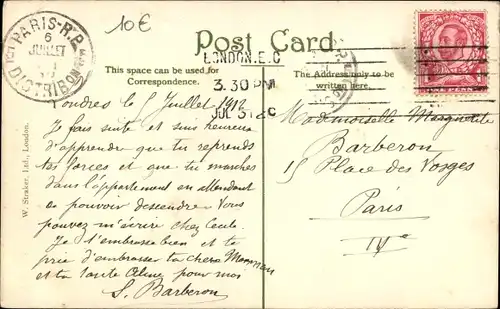 PARIS-R.P.
6
JUILLET
DISTRIBON
10€
Post Card
LONDON.E.C
3.30 PM
JUL 5 12C
This space can be used for
Correspondence.
The Address only to be
written here.
Londres le 5 Juillet 1912
Je suis suite et suis heureux
d'apprendre que tu reprends
tes forces et que tu marches
dans l'appartement en attendant
de pouvoir descendre Vous
pouvez m'écrire chez Cecile.
Je t'embrasse bien et te
prie d'embrasser ta chere Maman
et ta tante Aline pour moi
S. Barberon
Mademoiselle Marguerite
Barberon
15 Place des Vosges
Paris
IVe
W. Straker, Ltd., London.